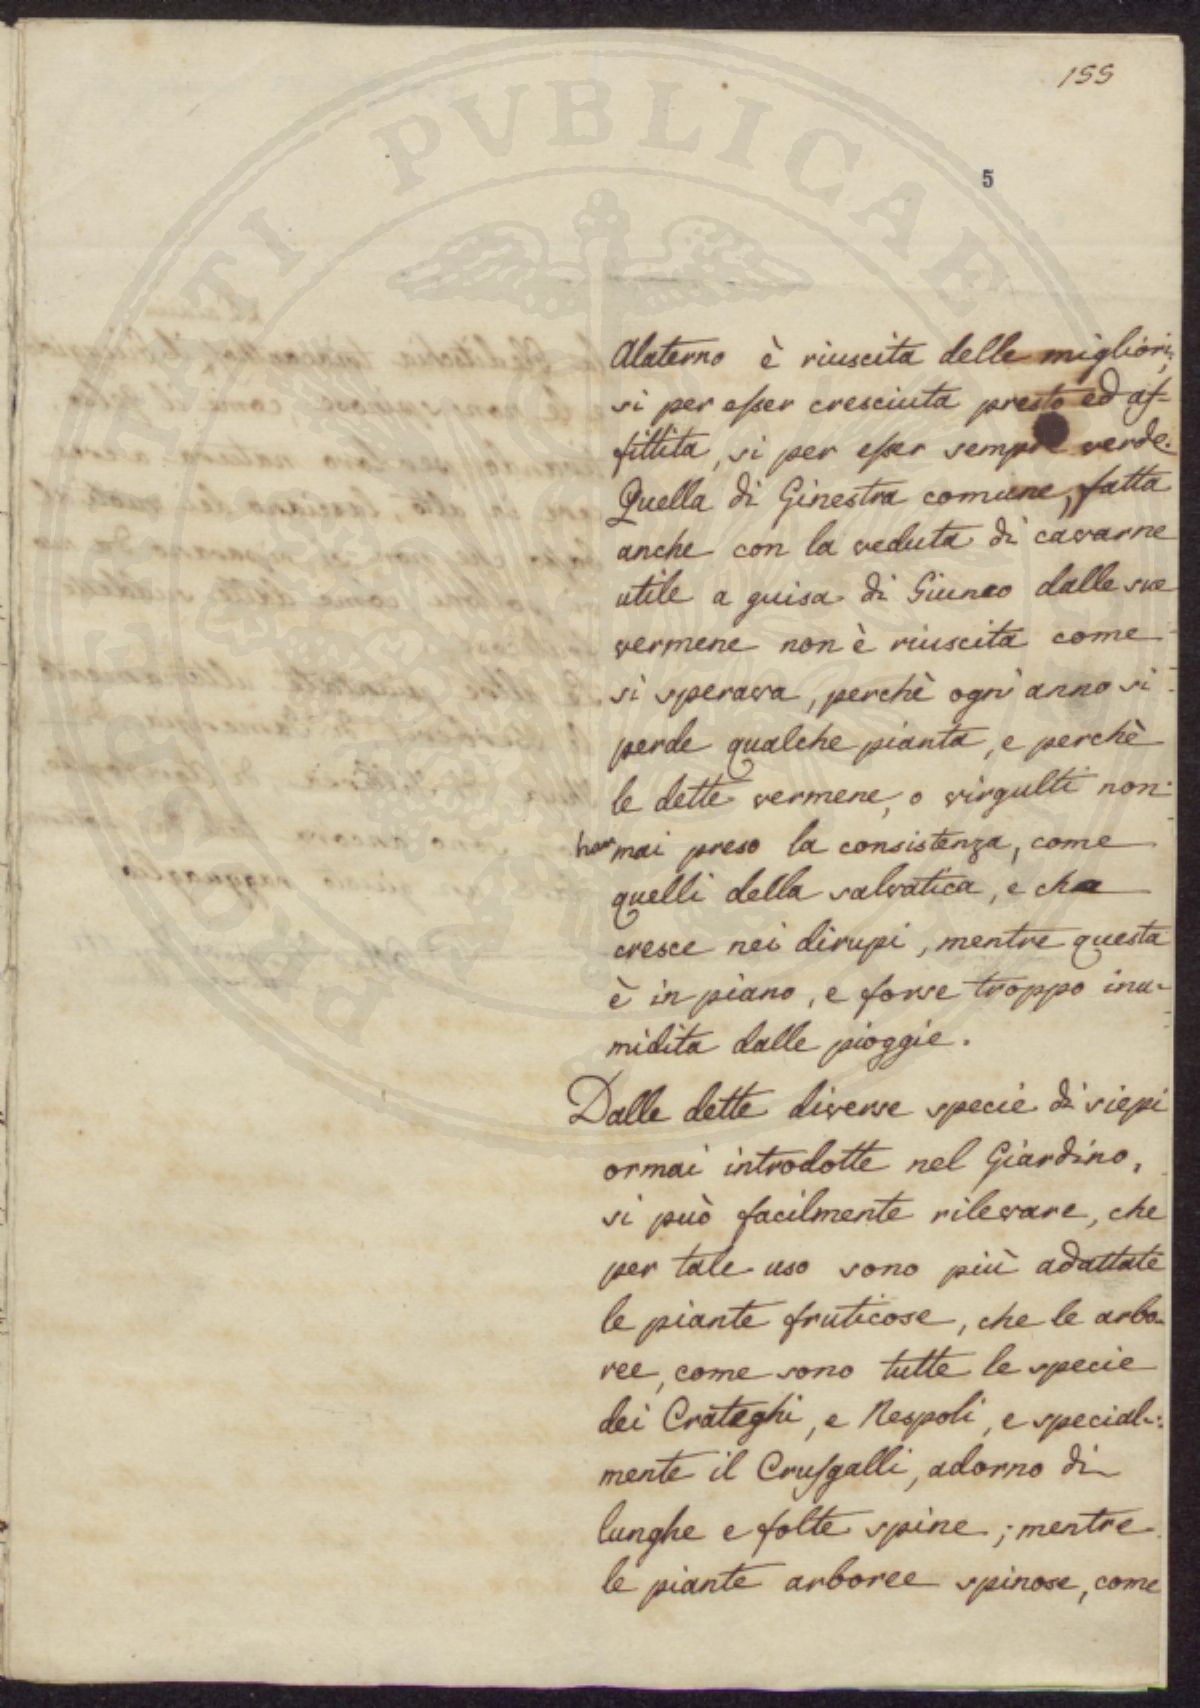 155
5
Alaterno è riuscita delle migliori,
si per esser cresciuta presto ed af=
fittita, si per esser sempre verde.
Quella di Ginestra comune, fatta
anche con la veduta di cavarne
utile a guisa di Giunco dalle sue
vermene non è riuscita come
si sperava, perchè ogn' anno si
perde qualche pianta, e perchè
le dette vermene, o virgulti non
han mai preso la consistenza, come
quelli della salvatica, e che
cresce nei dirupi, mentre questa
è in piano, e forse troppo inu-
midita dalle pioggie.
Dalle dette diverse specie di siepi
ormai introdotte nel Giardino,
si può facilmente rilevare, che
per tale uso sono più adattate
le piante fruticose, che le arbo-
ree, come sono tutte le specie
dei Crateghi, e Nespoli, e special-
mente il Crusgalli, adorno di
lunghe e folte spine; mentre
le piante arboree spinose, come